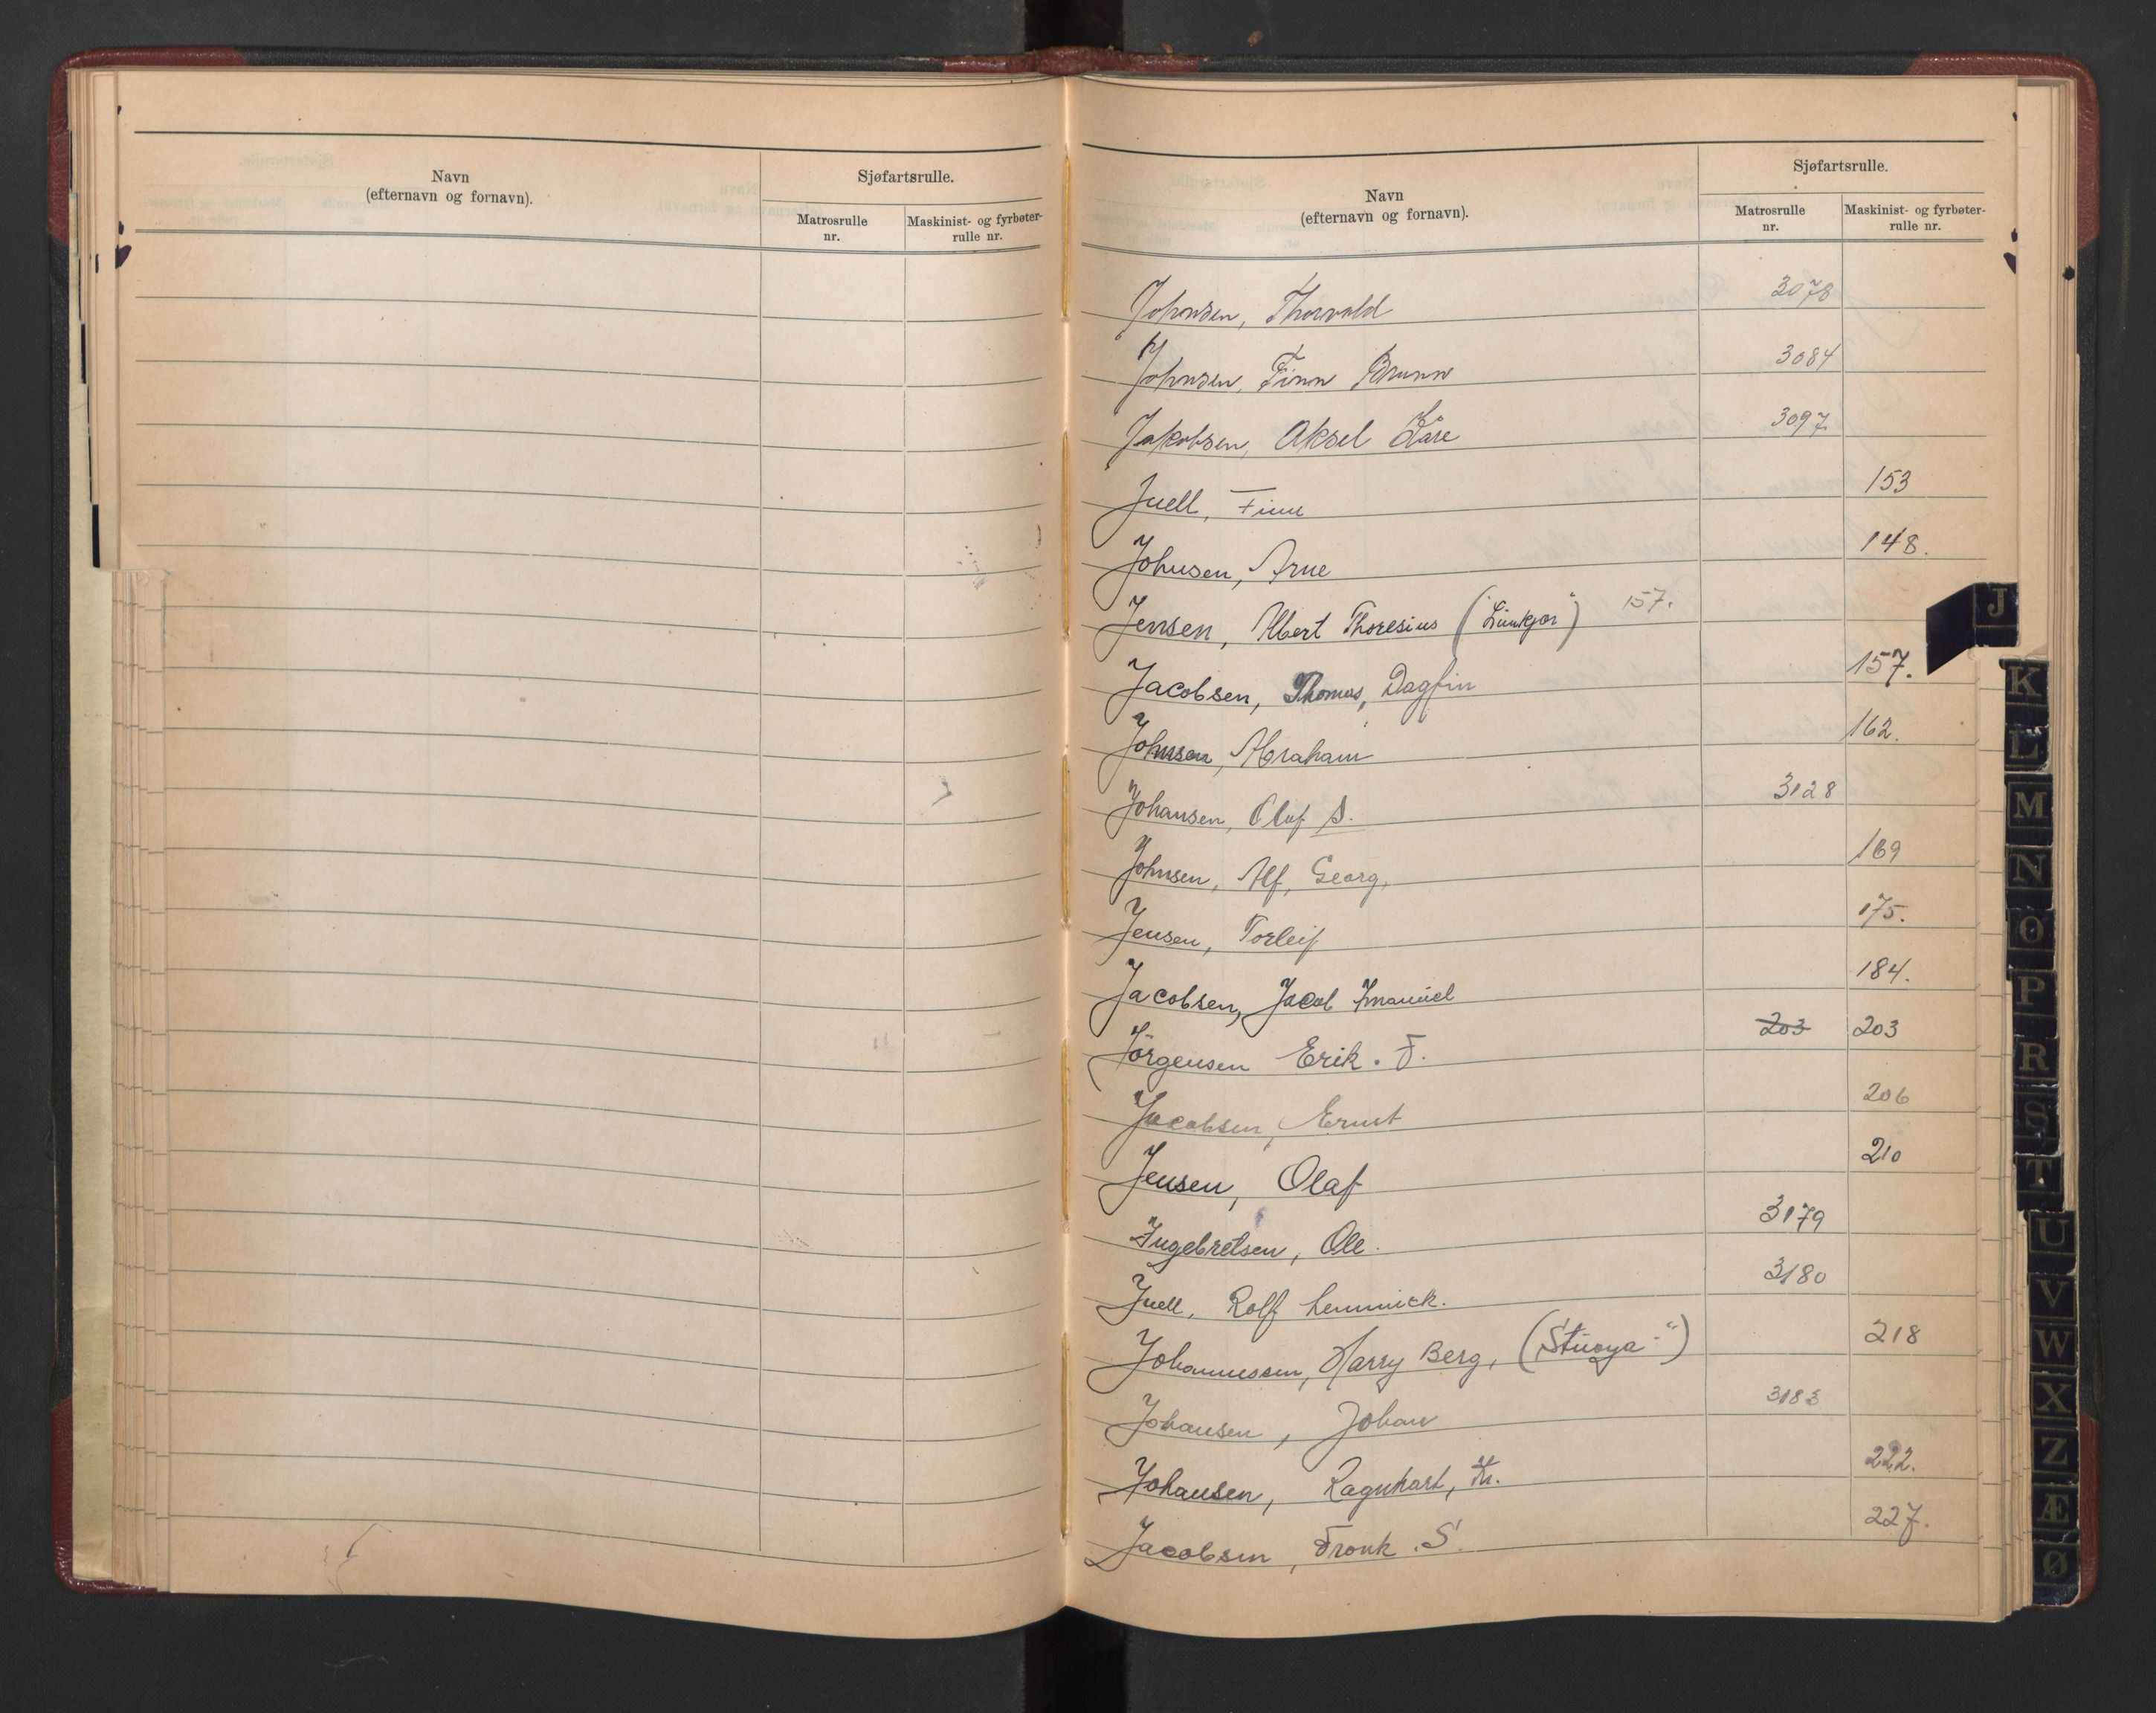 Navn
(efternavn og fornavn).
Sjøfartsrulle.
Matrosrulle
nr.
Maskinist- og fyrbøter-
rulle nr.
Navn
(efternavn og fornavn).
Sjøfartsrulle.
Matrosrulle
nr.
Maskinist- og fyrbøter-
rulle nr.
Johnsen, Thorvald 3078
Johnsen, Finn Brunn 3084
Jakobsen, Aksel Kåre 3097
Juell, Finn 153
Johnsen, Arne 148.
Jensen, Albert Thoresius 157.
Jacobsen, Thomas, Dagfin 157.
Johnsen, Abraham 162.
Johansen, Olaf S. 3128
Johnsen, Alf, Georg, 169
Jensen, Torleif 175.
Jacobsen, Jacob Imanuel 184.
Jörgensen Erik. F. 203 203
Jacobsen, Ernst 206
Jensen, Olaf 210
Ingebretsen, Ole. 3179
Juell, Rolf 3180
Johannessen, Harry Berg, 218
Johansen, Johan 3183
Johansen, Ragnhart, Kr. 222.
Jacobsen, Frank. S. 227.
J
K
L
M
N
O
P
R
S
T
U
V
W
X
Z
Æ
Ø